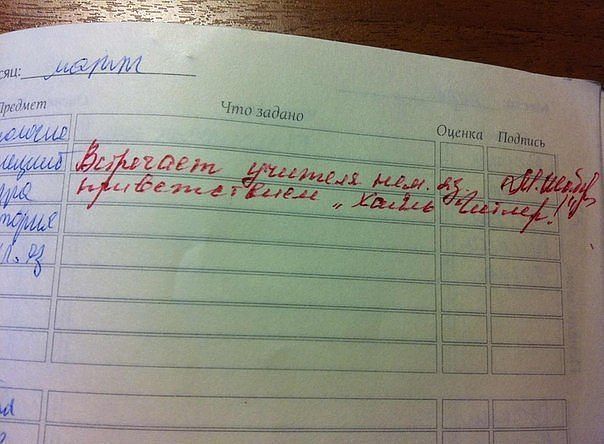 сяц: март
Предмет Что задано Оценка Подпись
ология
Встречает учителя нем. яз.
приветствием „Хайль Гитлер!"
тория